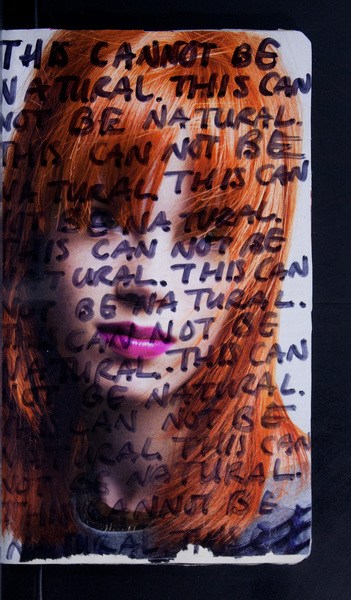 THIS CANNOT BE
NATURAL. THIS CAN
NOT BE NATURAL.
THIS CAN NOT BE
NATURAL THIS CAN
NOT BE NATURAL.
THIS CAN NOT BE
NATURAL. THIS CAN
NOT BE NATURAL.
THIS CAN NOT BE
NATURAL. THIS CAN
NOT BE NATURAL.
THIS CAN NOT BE
NATURAL THIS CAN
NOT BE NATURAL.
THIS CANNOT BE
NATURAL. THIS